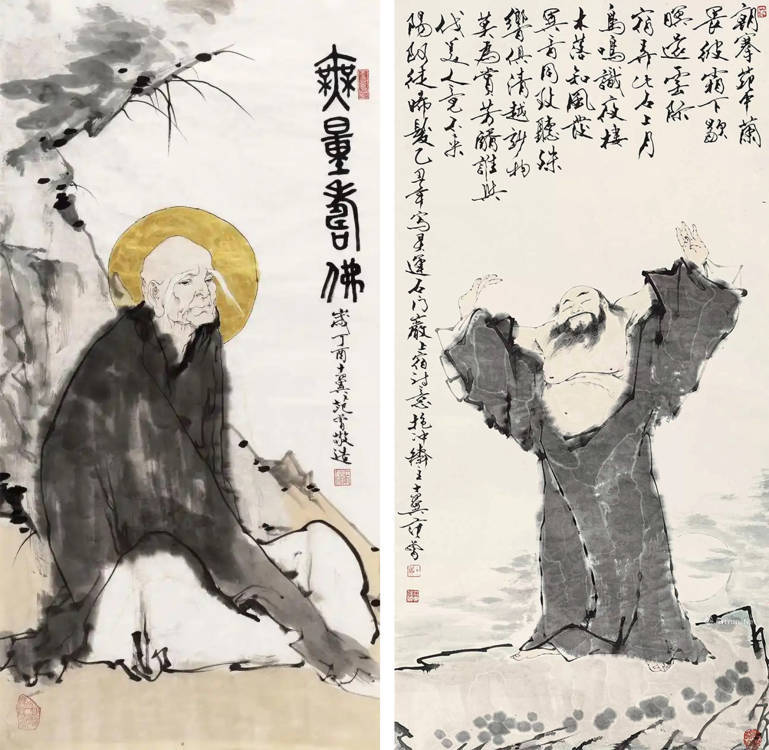 無量壽佛
歲丁酉十翼范曾敬造
朝搴苑中蘭
畏彼霜下歇
暝還雲際
宿弄此石上月
鳥鳴識夜棲
木落知風發
異音同致聽殊
響俱清越妙物
莫為賞芳醑誰與
伐美人竟不來
陽阿徒晞髮乙丑年寫靈運石門巖上宿詩意抱沖齋主十翼范曾